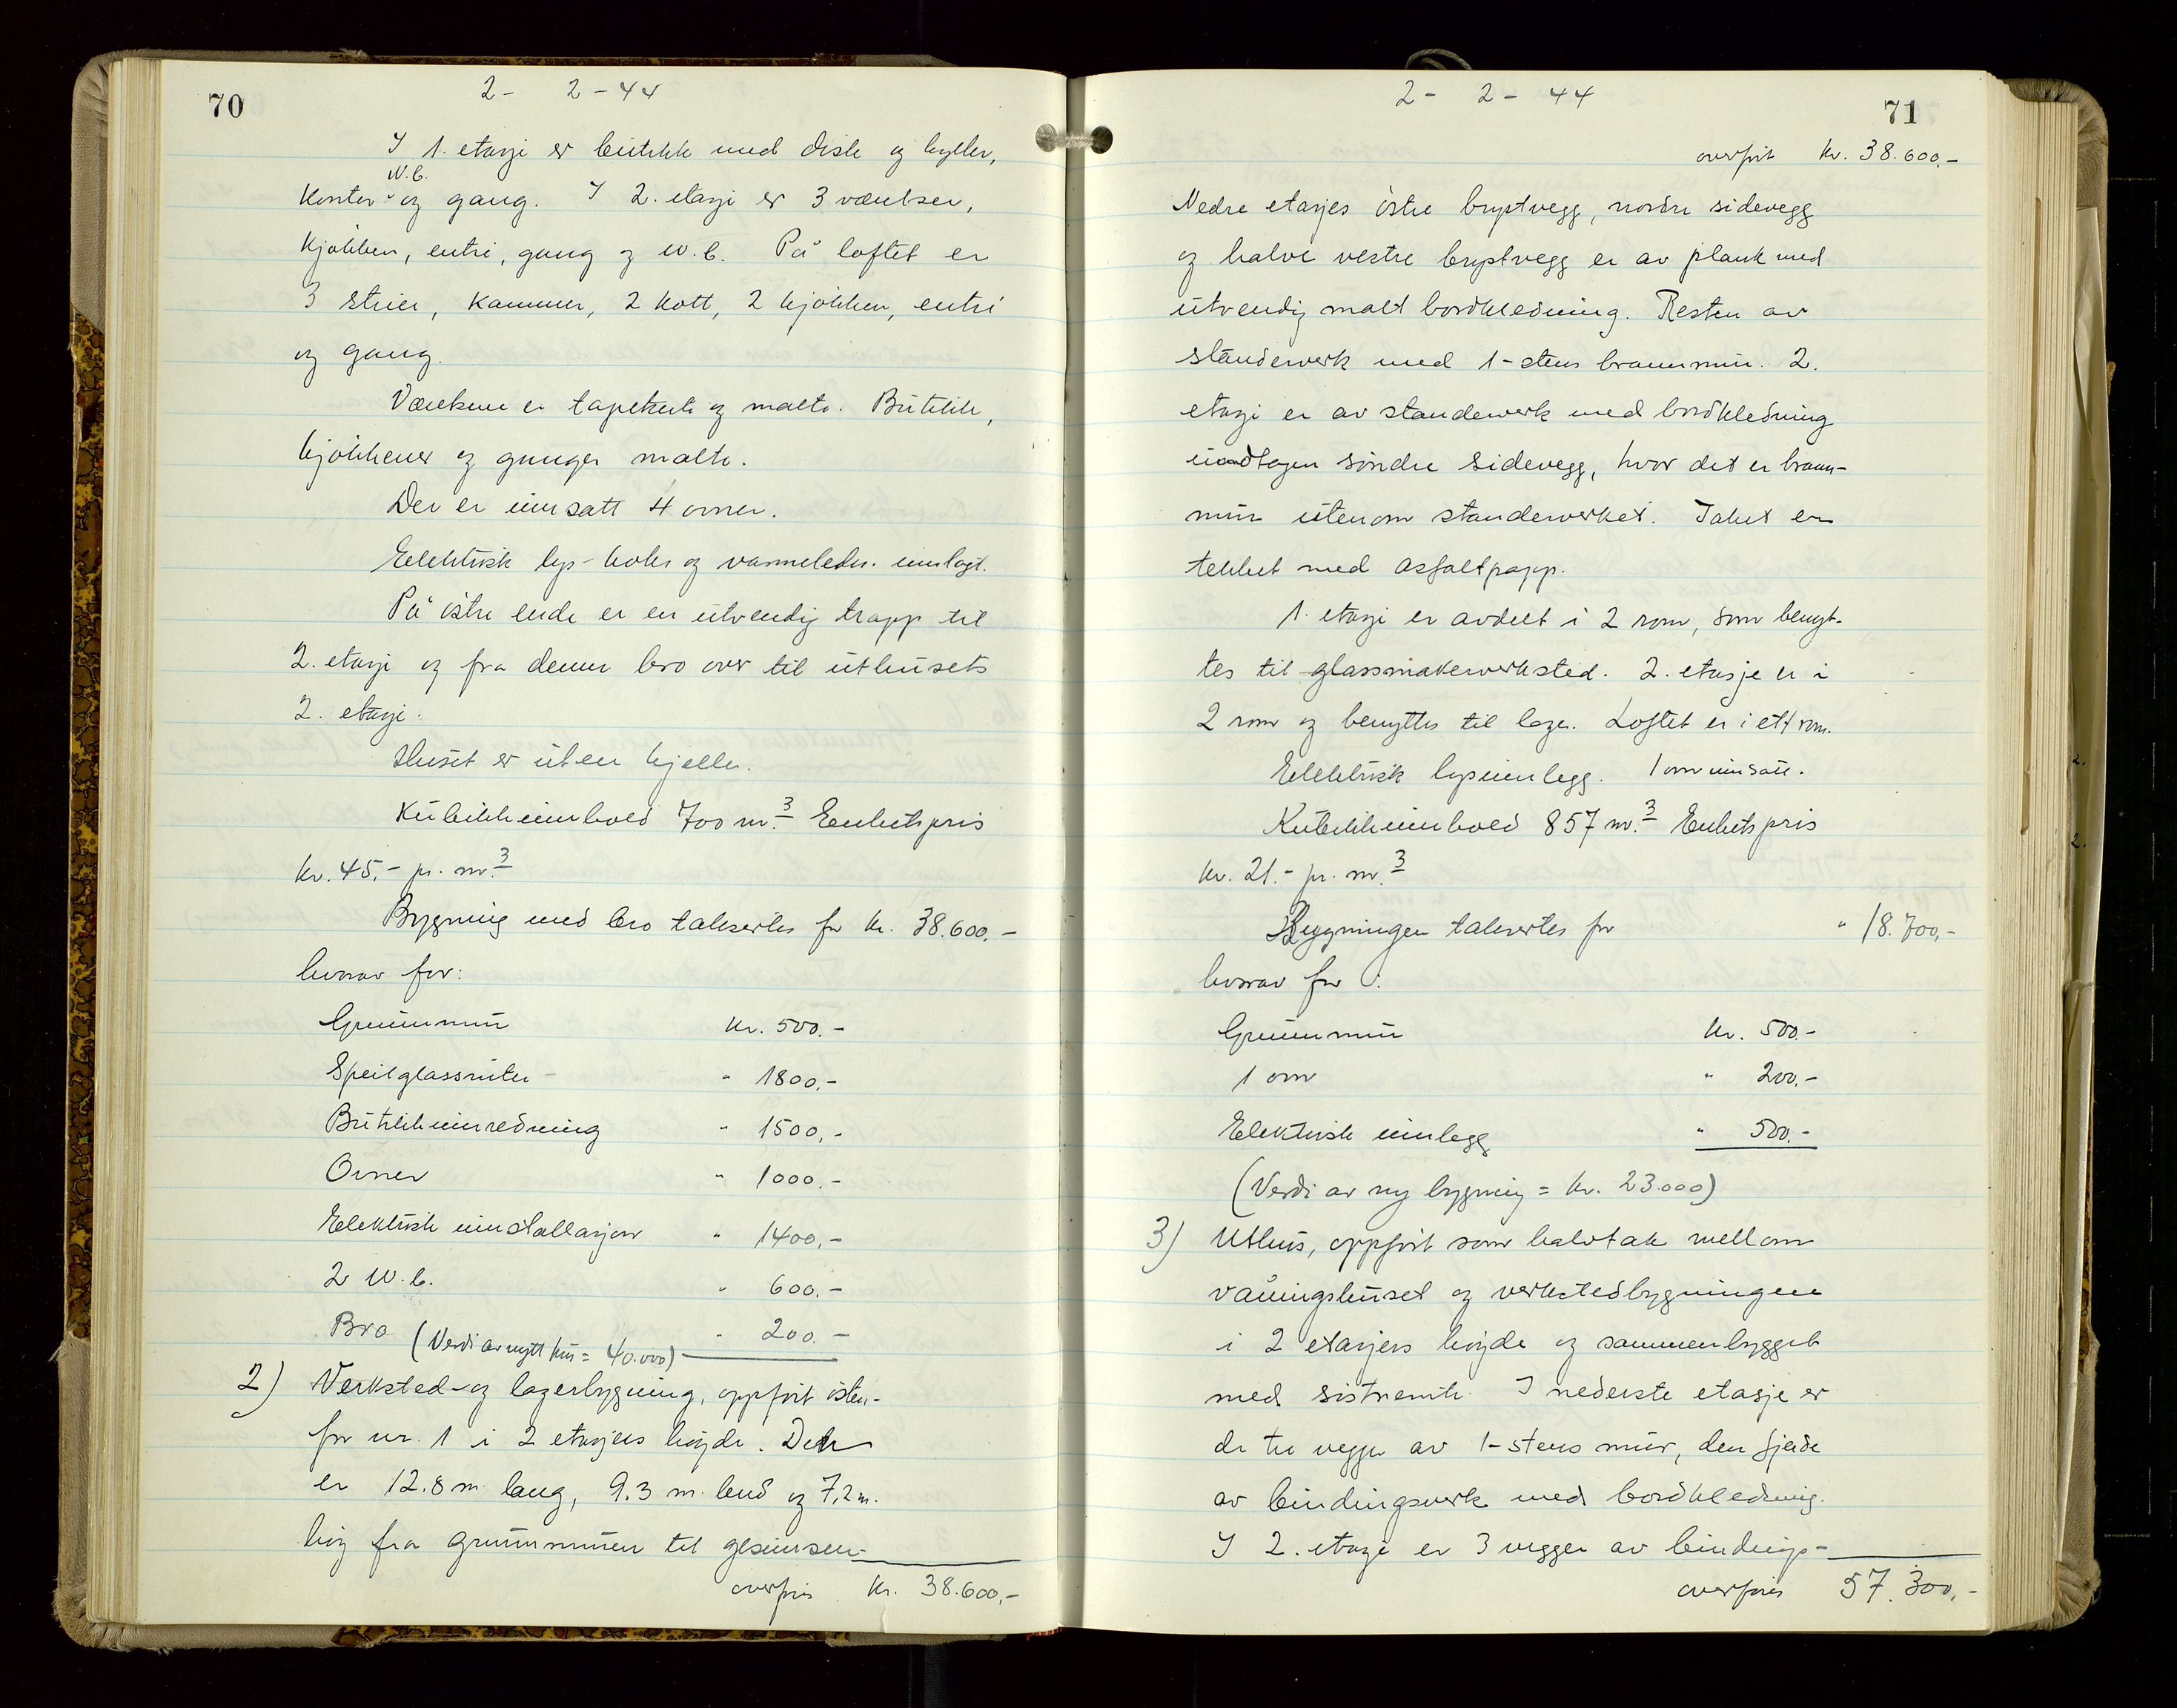 70
2- 2-44
I 1. etasje er butikk med disk og hyller,
W.C.
kontor og gang. I 2. etasje er 3 værelser,
kjøkken, entre, gang og W.C. På loftet er
3 stuer, kammer, 2 kott, 2 kjøkken, entre
og gang.
Værelsene er tapetserte og malte. Butikk,
kjøkkener og ganger malte.
Der er innsatt 4 ovner.
Elektrisk lys- koke og varmeledn. innlagt.
På østre ende er en utvendig trapp til
2. etasje og fra denne bro over til uthusets
2. etasje.
Huset er uten kjeller.
Kubikkinnhold 700 m.3 Enhetspris
kr. 45.- pr. m.3
Bygning med bro takseres for kr. 38.600.-
hvorav for:
Grunnmur kr. 500.-
Speilglassruter " 1800.-
Butikkinnredning " 1500.-
Ovner " 1000.-
Elektrisk innstallasjon " 1400.-
2 W.C. " 600.-
Bro (Verdi av nytt hus = 40.000) " 200.-
2) Verksted- og lagerbygning, oppført østen-
for nr. 1 i 2 etasjers høyde. Den
er 12.8 m. lang, 9.3 m. bred og 7,2 m.
høy fra grunnmuren til gesimsen.
overføres kr. 38.600.-
71
2- 2- 44
overført kr. 38.600.-
Nedre etasjes østre brystvegg, nordre sidevegg
og halve vestre brystvegg er av plank med
utvendig malt bordkledning. Resten av
standerverk med 1-stens brannmur. 2.
etasje er av standerverk med bordkledning
undtagen søndre sidevegg, hvor det er brann-
mur utenom standerverket. Taket er
tekket med asfaltpapp.
1. etasje er avdelt i 2 rom, som benyt-
tes til glassmakerverksted. 2. etasje er i
2 rom og benyttes til lager. Loftet er i ett rom.
Elektrisk lysinnlegg. 1 ovn innsatt.
Kubikkinnhold 857 m.3 Enhetspris
kr. 21.- pr. m.3
Bygningen takseres for " 18.700.-
hvorav for:
Grunnmur kr. 500.-
1 ovn " 200.-
Elektrisk innlegg " 500.-
(Verdi av ny bygning = kr. 23.000)
3) Uthus, oppført som halvtak mellom
våningshuset og verkstedbygningen
i 2 etasjers høyde og sammenbygget
med sistnevnte. I nederste etasje er
de tre vegger av 1-stens mur, den fjerde
av bindingsverk med bordkledning.
I 2. etasje er 3 vegger av bindings-
overføres 57.300.-